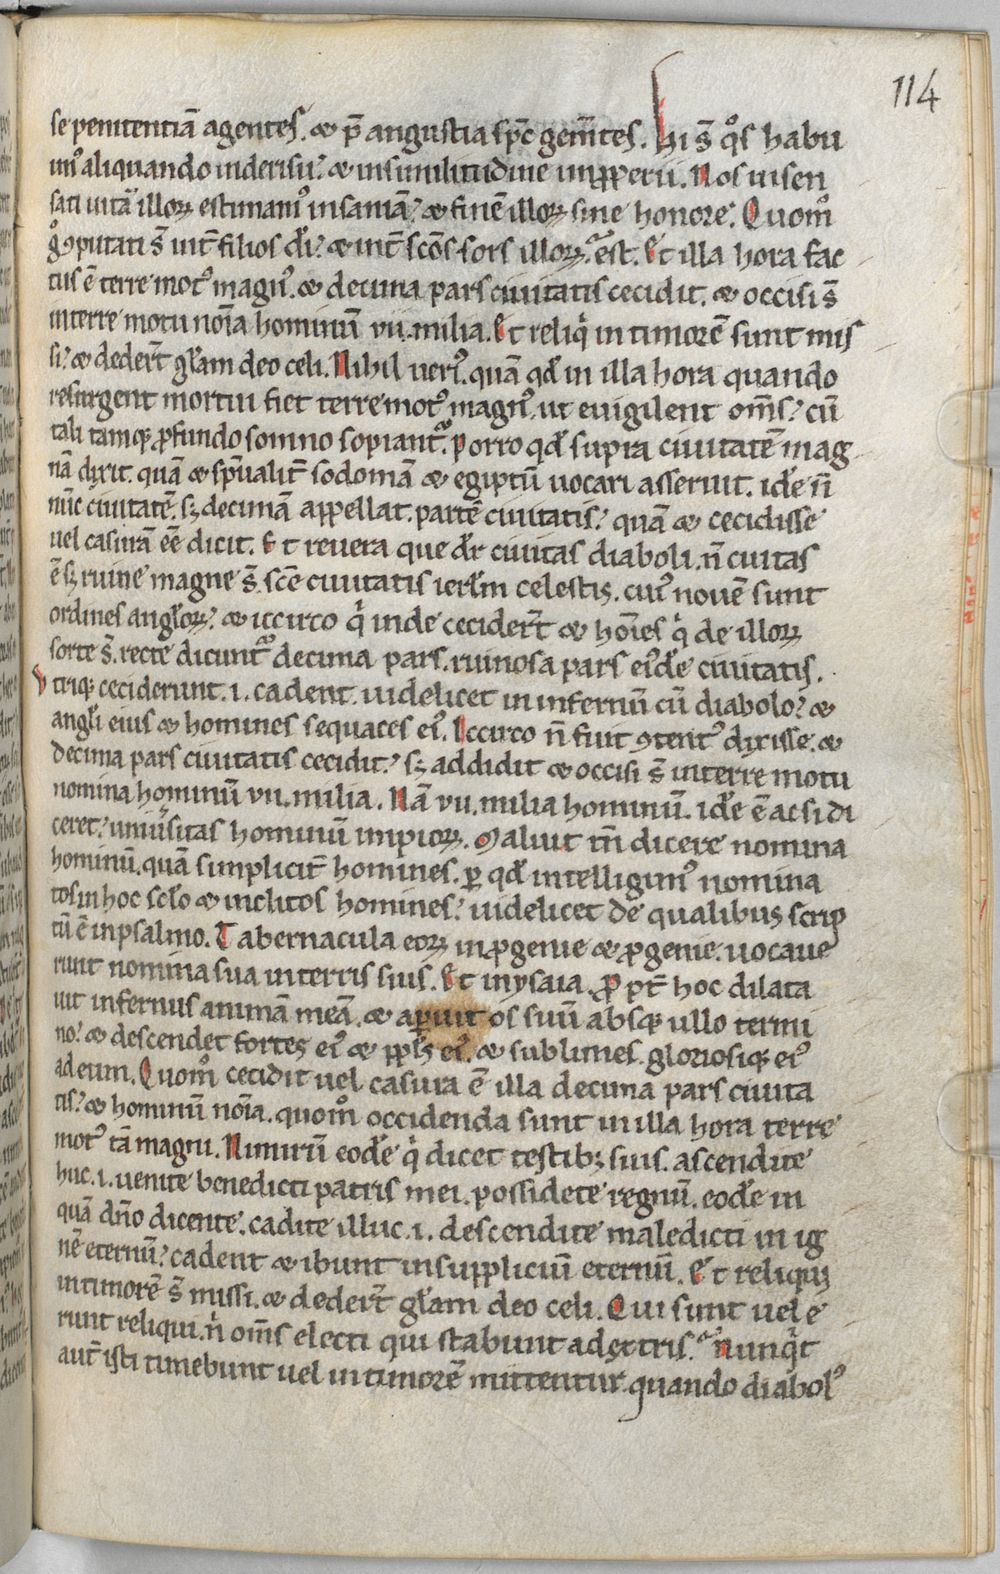 114
se penitentiā agentes. & p̄ angustia sp̄c gem̄tes. Hi s̄ q̊s habu
im᷒ aliquando in derisū. & in similitudine inꝓperii. Nos insen
sati uitā illoꝝ estimam᷒ insaniā. & finē illoꝝ sine honore. Quom̊
g̊ ꝯputati s̄ int̄ filios d̄i. & int̄ sc̄os sors illoꝝ est. Et illa hora fac
tus ē terre mot᷒ magn᷒. & decima pars ciuitatis cecidit. & occisi s̄
in terre motu noīa hominū vii. milia. Et reliq̇ in timorē sunt mis
si. & deder̄t gl̄am deo celi. Nihil ueri᷒. quā qd̄ in illa hora quando
resurgent mortui fiet terremot᷒ magn᷒. ut euigilent om̄s. cū
tali tamqꝫ ꝓfundo somno sopiant᷑. Porro qd̄ supra ciuitatē mag
nā dixit. quā & sp̄ualit̄ sodomā & egiptū uocari asseruit. id̄e n̄
nūc ciuitatē. sꝫ decimā appellat. partē ciuitatis. quā & cecidisse
uel casurā eē dicit. Et reuera que dr̄ ciuitas diaboli. n̄ cuitas
ē sꝫ ruine magne s̄ sc̄e ciuitatis ierl̄m celestis. cui᷒ nouē sunt
ordines angl̄oꝝ. & iccirco q̇ inde cecider̄t & hoīes q̇ de illoꝝ
sorte s̄. recte dicunt᷑ decima pars. ruinosa pars ei᷒d̄e ciuitatis.
Vtriqꝫ ceciderunt .i. cadent. uidelicet in infernū cū diabolo. &
angl̄i eius & homines sequaces ei᷒. Iccirco n̄ fuit ꝯtent᷒ dixisse. &
decima pars ciuitatis cecidit. sꝫ addidit & occisi s̄ in terre motu
nomina hominū vii. milia. Nā vii. milia hominū. id̄e ē ac si di
ceret. uniūsitas hominū impioꝝ. Maluit tn̄ dicere nomina
hominū. quā simplicit̄ homines. ꝑ qd̄ intelligim᷒ nomina
tos in hoc scl̄o & inclitos homines. uidelicet de qualibus scrip
tū ē in psalmo. Tabernacula eoꝝ in ꝓgenie & ꝓgenie. uocaue
runt nomina sua in terris suis. Et in ysaia. Ꝓpt̄ hoc dilata
uit infernus animā meā. & aperuit os suū absqꝫ ullo termi
no. & descendet fortes ei᷒ & ppl̄s ei᷒. & sublimes. gloriosiqꝫ ei᷒
ad eum. Quom̊ cecidit uel casura ē illa decima pars ciuita
tis. & hominū noīa. quom̊ occidenda sunt in illa hora terre
mot᷒ tā magni. Nimirū eod̄e q̇ dicet testibꝫ suis. ascendite
huc .i. uenite benedicti patris mei. possidete regnū. eod̄e in
quā dn̄o dicente. cadite illuc .i. descendite maledicti in ig
nē eternū. cadent & ibunt in suppliciū eternū. Et reliqui
in timorē s̄ missi. & deder̄t gl̄am deo celi. Qui sunt uel e
runt reliqui. n̄ om̄s electi qui stabunt a dextris. Nunq̇t
aut̄ isti timebunt uel in timorē mittentur. quando diabol᷒